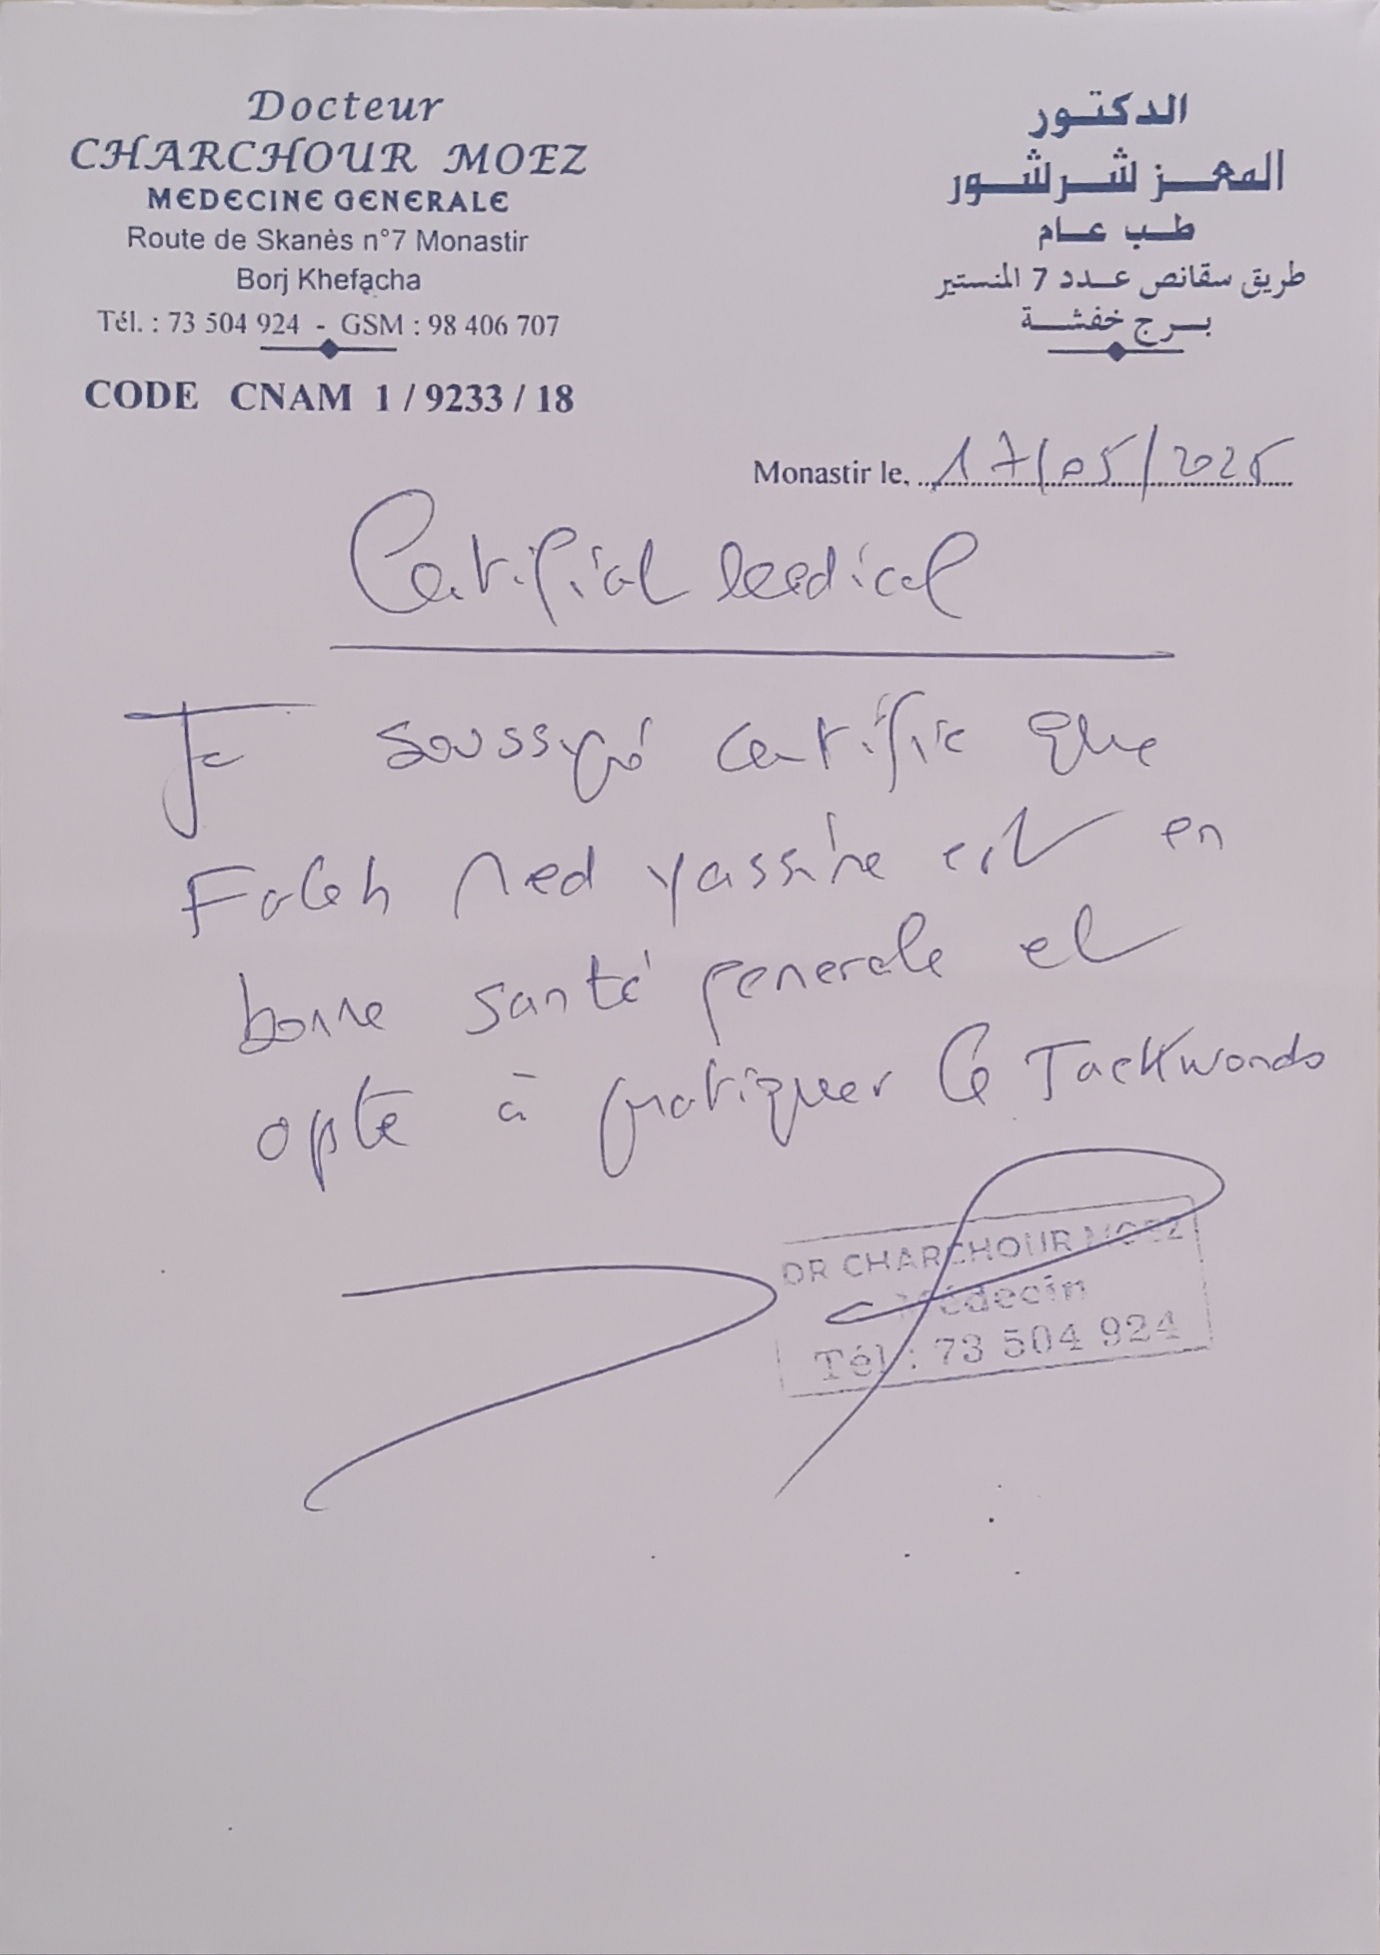 Docteur
CHARCHOUR MOEZ
MEDECINE GENERALE
Route de Skanès n°7 Monastir
Borj Khefacha
Tél. : 73 504 924 - GSM : 98 406 707
CODE CNAM 1 / 9233 / 18
الدكتور
المعز شرشور
طب عام
طريق سقانص عدد 7 المنستير
برج خفشة
Monastir le, 17/05/2025
Certificat Medical
Je soussigné certifie que
Faleh Med yassine est en
bonne santé generale et
apte à pratiquer le Taekwondo
DR CHARCHOUR MOEZ
Médecin
Tél : 73 504 924